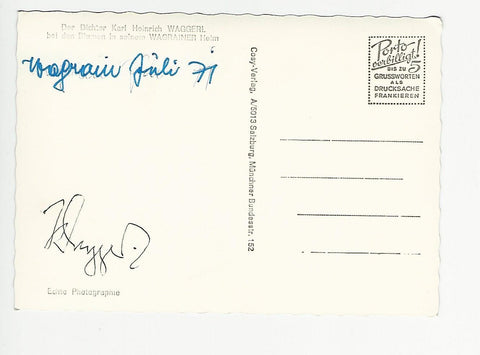 Der Dichter Karl Heinrich WAGGERL
bei den Blumen in seinem WAGRAINER Heim
Wagrain Juli 71
Porto
verbilligt!
BIS ZU 5
GRUSSWORTEN
ALS
DRUCKSACHE
FRANKIEREN
Cosy-Verlag, A/5013 Salzburg, Münchner Bundesstr. 152
KHWaggerl
Echte Photographie